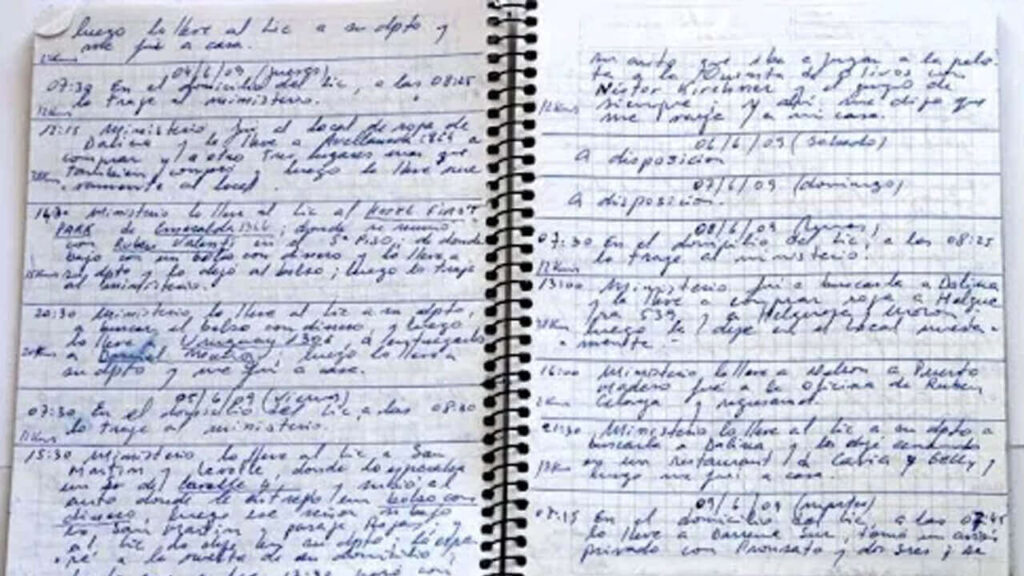 luego lo lleve al Lic a su dpto y
me fui a casa.
04/6/09 (jueves)
07:30 En el domicilio del Lic, a las 08:25
lo traje al ministerio.
12 Kms
12:15 Ministerio fui al local de ropa de
Dalina y la lleve a Avellaneda
comprar y a otro tres lugares mas que
tambien compro y luego la lleve nue
vamente al local.
Ministerio lo lleve al Lic al Hotel
PARK de Esmeralda 1366, donde se reunio
con Ruben Valenti en el 5º Piso, de donde
bajo con un bolso con dinero y lo lleve a
su dpto y lo dejo al bolso; luego lo traje
al ministerio.
20:30 Ministerio lo lleve al Lic a su dpto,
a buscar el bolso con dinero, y luego
lo lleve a Uruguay 1306 a entregarlo
a Daniel; luego lo lleve a
su dpto y me fui a casa.
05/6/09 (viernes)
07:30 En el domicilio del Lic, a las 08:30
lo traje al ministerio.
15:30 Ministerio lo lleve al Lic a San
Martin y Lavalle donde lo esperaba
un Sr de Lavalle y subio al
auto donde le entrego un bolso con
dinero, luego ese señor se bajo
en San Martin y pasaje Rojas, y
al Lic lo deje en su dpto, lo espe
re a la vuelta de su domicilio,
mi auto que iba a jugar a la pelo
ta a la Quinta de Olivos con
Néstor Kirchner y el grupo de
siempre; y ahi me dijo que
me vaya a mi casa.
12 Kms
06/6/09 (sabado)
A disposicion
07/6/09 (domingo)
A disposicion.
08/6/09 (Lunes)
07:30 En el domicilio del Lic, a las 08:25
lo traje al ministerio.
12 Kms
13:00 Ministerio fui a buscarla a Dalina
y la lleve a comprar ropa a Helgue
ra 539, y a Helguera y Moron
luego la deje en el local nueva-
mente.
16:00 Ministerio lo lleve a Nelson a Puerto
Madero fui a la oficina de Ruben
y regresamos.
21:30 Ministerio lo lleve al Lic a su dpto a
buscarla a Dalina y los dejé cenando
en un restaurant en Cavia y Gelly,
luego me fui a casa.
09/6/09 (martes)
En el domicilio del Lic, a las 07:45
lo lleve a Barrene Sur, tomó un avion
privado con y dos sres; se